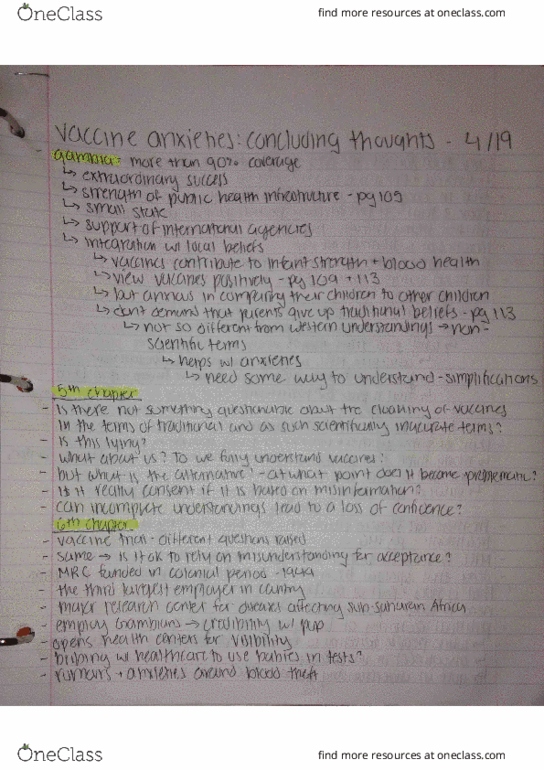 OneClass
find more resources at oneclass.com
vaccine anxieties: concluding thoughts - 4/19
gambia: more than 90% coverage
↳ extraordinary success
↳ strength of public health infrastructure - pg 105
↳ small state
↳ support of international agencies
↳ integration w/ local beliefs
↳ vaccines contribute to infant strength + blood health
↳ view vaccines positively - pg 109 + 113
↳ but anxious in comparing their children to other children
↳ dont demand that parents give up traditional beliefs - pg 113
↳ not so different from western understandings → non-
scientific terms
↳ helps w/ anxieties
↳ need some way to understand - simplifications
5th chapter
- Is there not something questionable about the cloaking of vaccines
in the terms of traditional and as such scientifically inaccurate terms?
- Is this lying?
- what about us? Do we fully understand vaccines?
- but what is the alternative? - at what point does it become problematic?
- Is it really consent if it is based on misinformation?
- can incomplete understandings lead to a loss of confidence?
6th chapter
- vaccine trial - different questions raised
- same → is it ok to rely on misunderstanding for acceptance?
- MRC funded in colonial period - 1949
- the third largest employer in country
- major research center for diseases affecting sub-saharan Africa
- employ Gambians → credibility w/ pop
- opens health centers for visibility
- bribing w/ healthcare to use babies in tests?
- rumours + anxieties around blood theft
OneClass
find more resources at oneclass.com